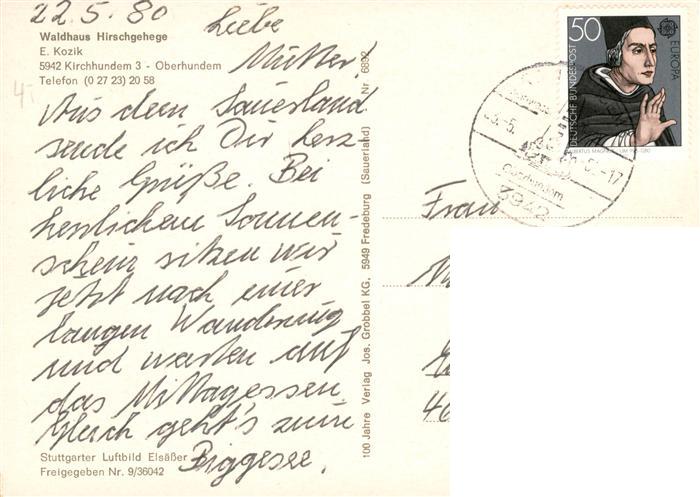 22.5.80 Liebe
Waldhaus Hirschgehege
E. Kozik
5942 Kirchhundem 3 - Oberhundem
Telefon (0 27 23) 20 58
Mutter!
Aus dem Sauerland
sende ich Dir herz
liche Grüße. Bei
herrlichem Sonnen-
schein sitzen wir
jetzt nach einer
langen Wanderung
und warten auf
das Mittagessen.
Gleich geht's zum
Biggesee.
Stuttgarter Luftbild Elsäßer
Freigegeben Nr. 9/36042
100 Jahre Verlag Jos. Grobbel KG, 5949 Fredeburg (Sauerland) Nr 6892
50
DEUTSCHE BUNDESPOST
EUROPA
Frau